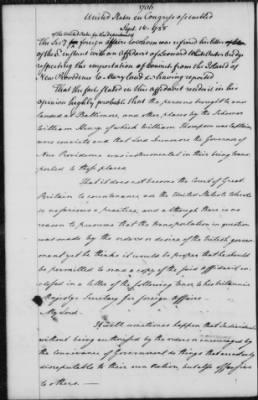 1706
United States in Congress assembled
Sept. 16. 1788
of the United States for the department
The Secy of foreign Affairs to whom was refered his letter
of the 8 instant with an Affidavit of Leonard White
respecting the importation of convicts from the Island of
New Providence to Maryland &c having reported
That the facts stated in this affidavit render it in his
opinion highly probable that the persons brought to and
landed at Baltimore, and other places by the Schooner
William Henry of which William Thompson was
were convicts and that Lord Dunmore the Governor of
New Providence was instrumental in their being trans
ported to those places
That it does not become the Court of Great
Britain to countenance and the United States
so nefarious a practice, and although there is no
reason to presume that the transportation in question
was made by the orders or desire of the british govern
ment yet he thinks it would be proper that he should
be permitted to send a copy of the said affidavit in-
closed in a letter of the following tenor to his britannic
Majestys Secretary for foreign Affairs
My Lord
It will sometimes happen that Individuals
without being authorized by the orders or encouraged by
the connivance of Government do things that are not only
disreputable to their own Nation, but also offensive
to others.